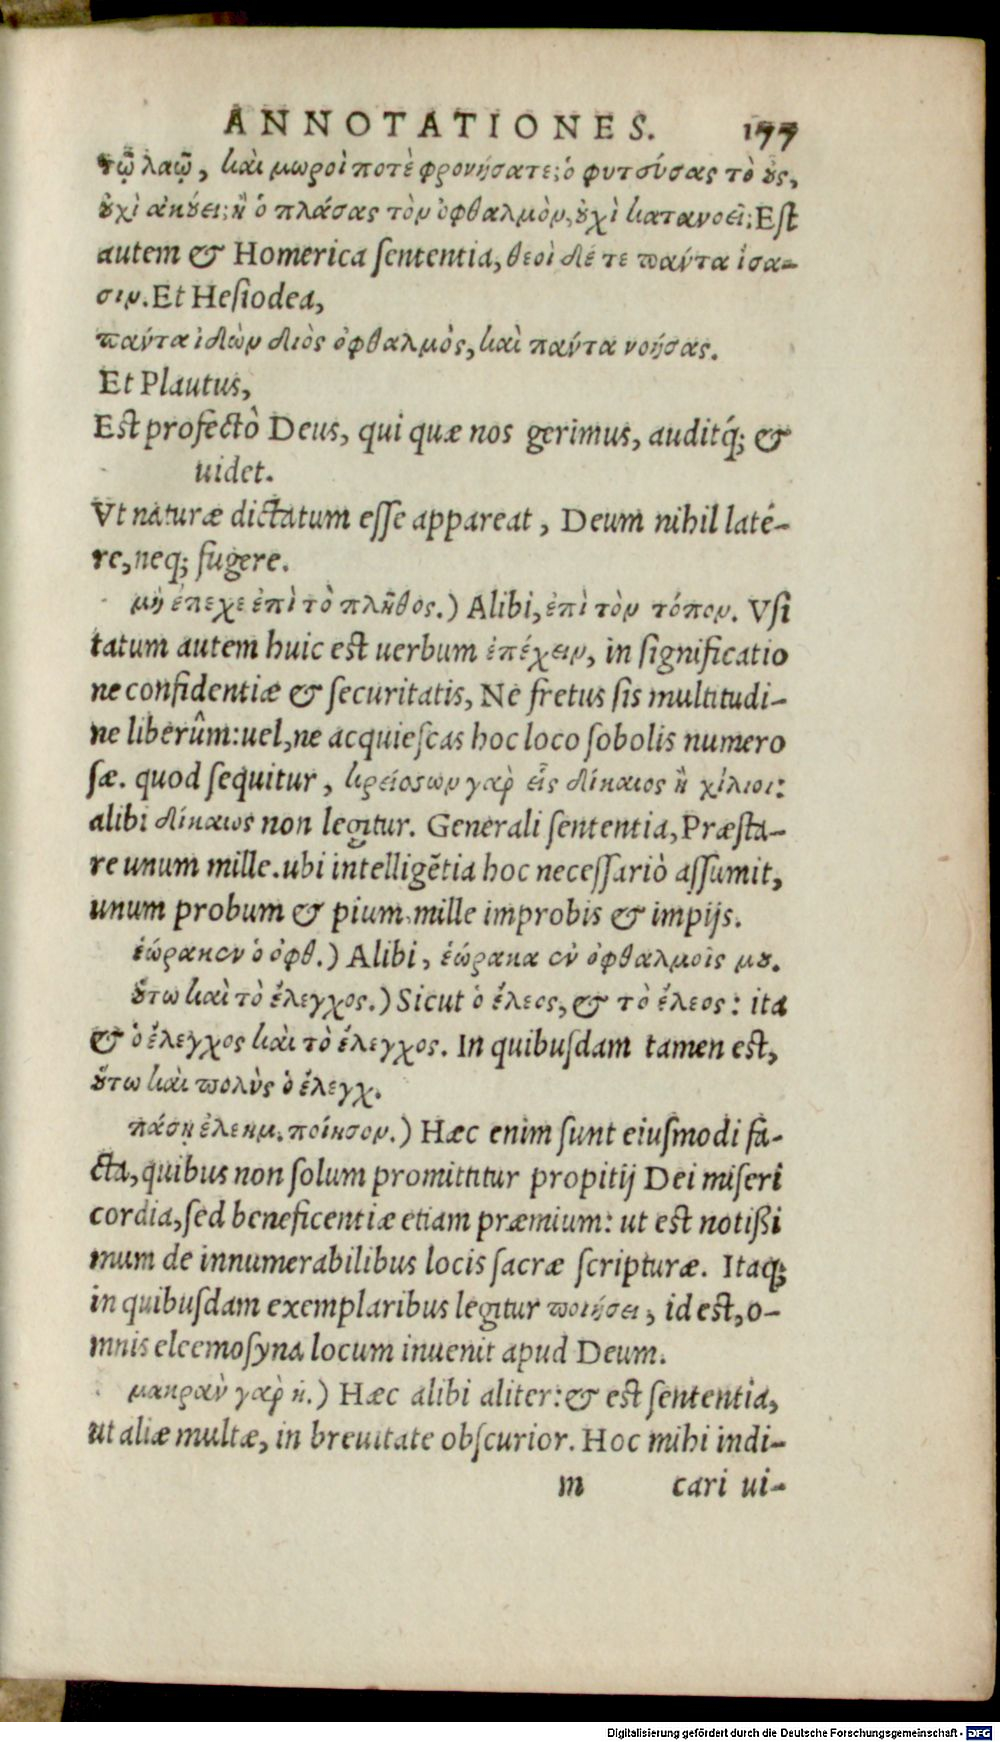 ANNOTATIONES. 177
τῷ λαῷ, καὶ μωροὶ ποτὲ φρονήσατε; ὁ φυτεύσας τὸ οὖς,
οὐχὶ ἀκούει; ἢ ὁ πλάσας τὸν ὀφθαλμὸν, οὐχὶ κατανοεῖ; Est
autem & Homerica ſententia, θεοὶ δέ τε πάντα ἴσα-
σιν. Et Heſiodea,
πάντα ἰδὼν διὸς ὀφθαλμὸς, καὶ πάντα νοήσας.
Et Plautus,
Eſt profectò Deus, qui quæ nos gerimus, auditq́; &
uidet.
Vt naturæ dictatum eſſe appareat, Deum nihil laté-
re, neq; fugere.
μὴ ἔπεχε ἐπὶ τὸ πλῆθος.) Alibi, ἐπὶ τὸν τόπον. Vſi
tatum autem huic eſt uerbum ἐπέχειν, in ſignificatio
ne confidentiæ & ſecuritatis, Ne fretus ſis multitudi-
ne liberûm: uel, ne acquieſcas hoc loco ſobolis numero
ſæ. quod ſequitur, κρείσσων γὰρ εἷς δίκαιος ἢ χίλιοι:
alibi δίκαιως non legitur. Generali ſententia, Præſta-
re unum mille. ubi intelligẽtia hoc neceſſariò aſſumit,
unum probum & pium, mille improbis & impijs.
ἑώρακεν ὁ ὀφθ.) Alibi, ἑώρακα ἐν ὀφθαλμοῖς μου.
οὕτω καὶ τὸ ἔλεγχος.) Sicut ὁ ἔλεος, & τὸ ἔλεος: ita
& ὁ ἔλεγχος καὶ τὸ ἔλεγχος. In quibuſdam tamen eſt,
οὕτω καὶ πολὺς ὁ ἔλεγχ.
πάσῃ ἐλεημ. ποίησον.) Hæc enim ſunt eiuſmodi fa-
cta, quibus non ſolum promittitur propitij Dei miſeri
cordia, ſed beneficentiæ etiam præmium: ut eſt notißi
mum de innumerabilibus locis ſacræ ſcripturæ. Itaq;
in quibuſdam exemplaribus legitur ποιήσει, id eſt, o-
mnis eleemoſyna locum inuenit apud Deum.
μακρὰν γὰρ ἡ.) Hæc alibi aliter: & eſt ſententia,
ut aliæ multæ, in breuitate obſcurior. Hoc mihi indi-
m cari ui-
Digitalisierung gefördert durch die Deutsche Forschungsgemeinschaft - DFG